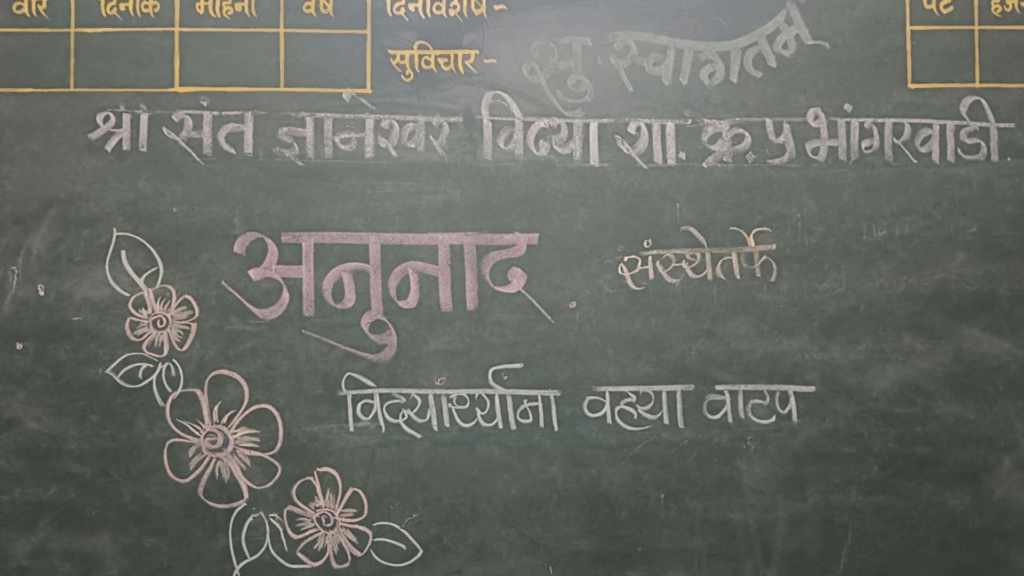 वार दिनांक महिना वर्ष दिनविशेष- पट हजर
सुविचार-
सु.स्वागतम्
श्री संत ज्ञानेश्वर विद्या शा. क्र. ५ भांगरवाडी.
अनुनाद संस्थेतर्फे
विद्यार्थ्यांना वहया वाटप